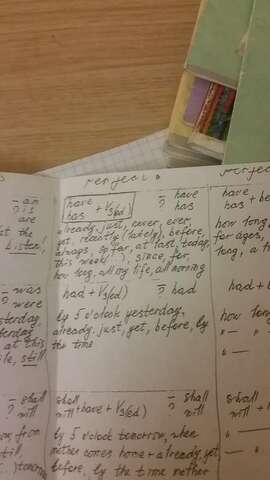 Perfect.
– am
? is
are
at the
Listen!
have
has + V3(ed)
– have
? has
already, just, never, ever,
yet, recently (lately), before,
always, so far, at last, today,
this week( ), since, for,
how long, all my life, all morning
have
has + be
how long,
for ages,
long, a
– was
? were
yesterday
yesterday
at this
ile, still
had + V3(ed)
– had
?
by 5 o'clock yesterday,
already, just, yet, before, by
the time
had + b
how lo
– " –
– " –
– shall
? will
from
still,
tomorrow
shall
will + have + V3(ed)
– shall
? will
by 5 o'clock tomorrow, when
mother comes home + already, yet,
before, by the time mother
shall
will +
– " –
– " –